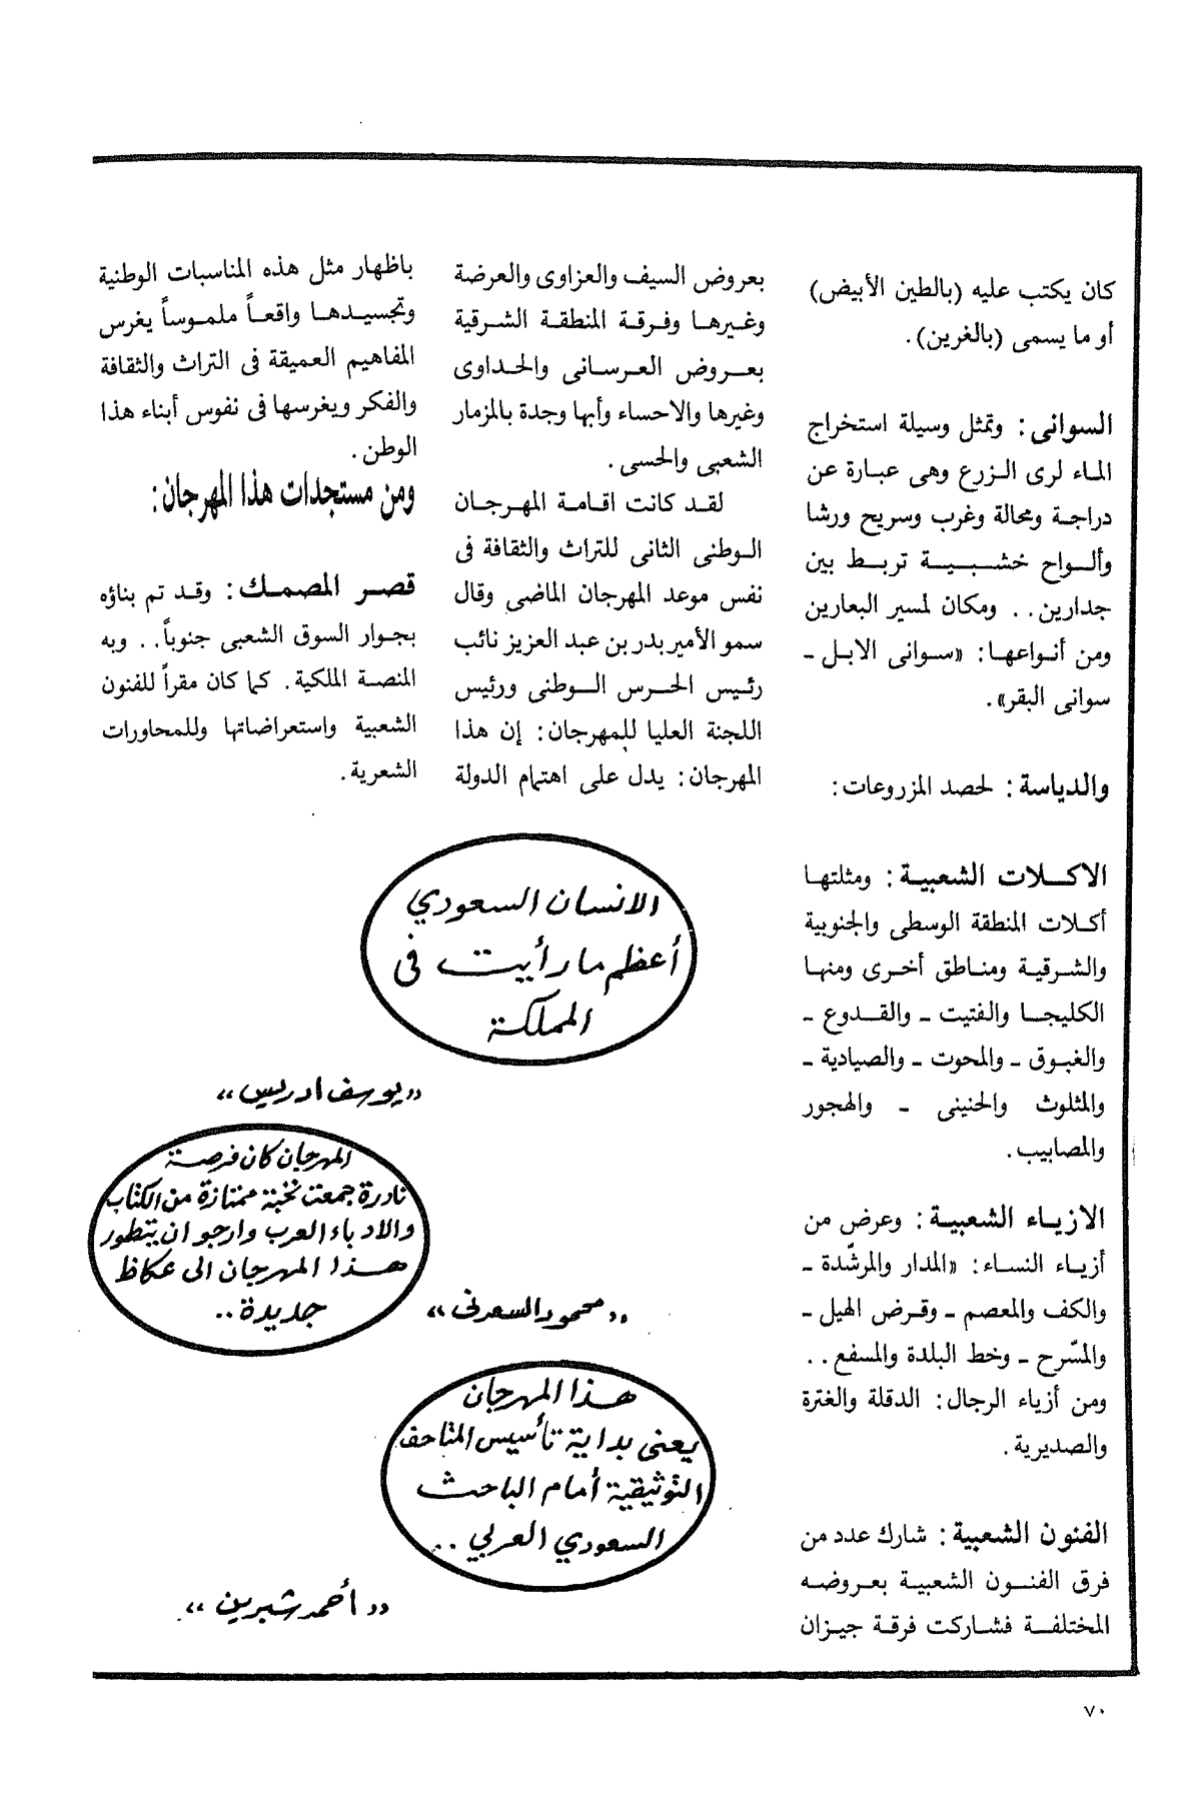 كان يكتب عليه (بالطين الأبيض)
أو ما يسمى (بالغرين).
السوانى: وتمثل وسيلة استخراج
الماء لرى الزرع وهى عبارة عن
دراجة ومحالة وغرب وسريح ورشا
وألواح خشبية تربط بين
جدارين.. ومكان لمسير البعارين
ومن أنواعها: «سوانى الابل ـ
سوانى البقر».
والدياسة: لحصد المزروعات:
الاكلات الشعبية: ومثلتها
أكلات المنطقة الوسطى والجنوبية
والشرقية ومناطق أخرى ومنها
الكليجا والفتيت ـ والقدوع ـ
والغبوق ـ والمحوت ـ والصيادية ـ
والمثلوث والحنينى ـ والهجور
والمصابيب.
الازياء الشعبية: وعرض من
أزياء النساء: «المدار والمرشّدة ـ
والكف والمعصم ـ وقرض الهيل ـ
والمسّرح ـ وخط البلدة والمسفع..
ومن أزياء الرجال: الدقلة والغترة
والصديرية.
الفنون الشعبية: شارك عدد من
فرق الفنون الشعبية بعروضه
المختلفة فشاركت فرقة جيزان
بعروض السيف والعزاوى والعرضة
وغيرها وفرقة المنطقة الشرقية
بعروض العرسانى والحداوى
وغيرها والاحساء وأبها وجدة بالمزمار
الشعبى والحسى.
لقد كانت اقامة المهرجان
الوطنى الثانى للتراث والثقافة فى
نفس موعد المهرجان الماضى وقال
سمو الأمير بدر بن عبد العزيز نائب
رئيس الحرس الوطنى ورئيس
اللجنة العليا للمهرجان: إن هذا
المهرجان: يدل على اهتمام الدولة
باظهار مثل هذه المناسبات الوطنية
وتجسيدها واقعاً ملموساً يغرس
المفاهيم العميقة فى التراث والثقافة
والفكر ويغرسها فى نفوس أبناء هذا
الوطن.
ومن مستجدات هذا المهرجان:
قصر المصمك: وقد تم بناؤه
بجوار السوق الشعبى جنوباً.. وبه
المنصة الملكية. كما كان مقراً للفنون
الشعبية واستعراضاتها وللمحاورات
الشعرية.
الانسان السعودي
أعظم ما رأيت فى
المملكة
«يوسف ادريس»
المهرجان كان فرصة
نادرة جمعت نخبة ممتازة من الكتاب
والادباء العرب وارجو ان يتطور
هذا المهرجان الى عكاظ
جديدة..
«محمود السعدنى»
هذا المهرجان
يعنى بداية تأسيس المتاحف
التوثيقية أمام الباحث
السعودي العربي..
«أحمد شبرين»
٧٠